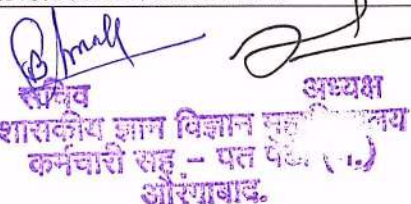 सचिव अध्यक्ष
शासकीय ज्ञान विज्ञान
कर्मचारी सह – पत
औरंगाबाद.